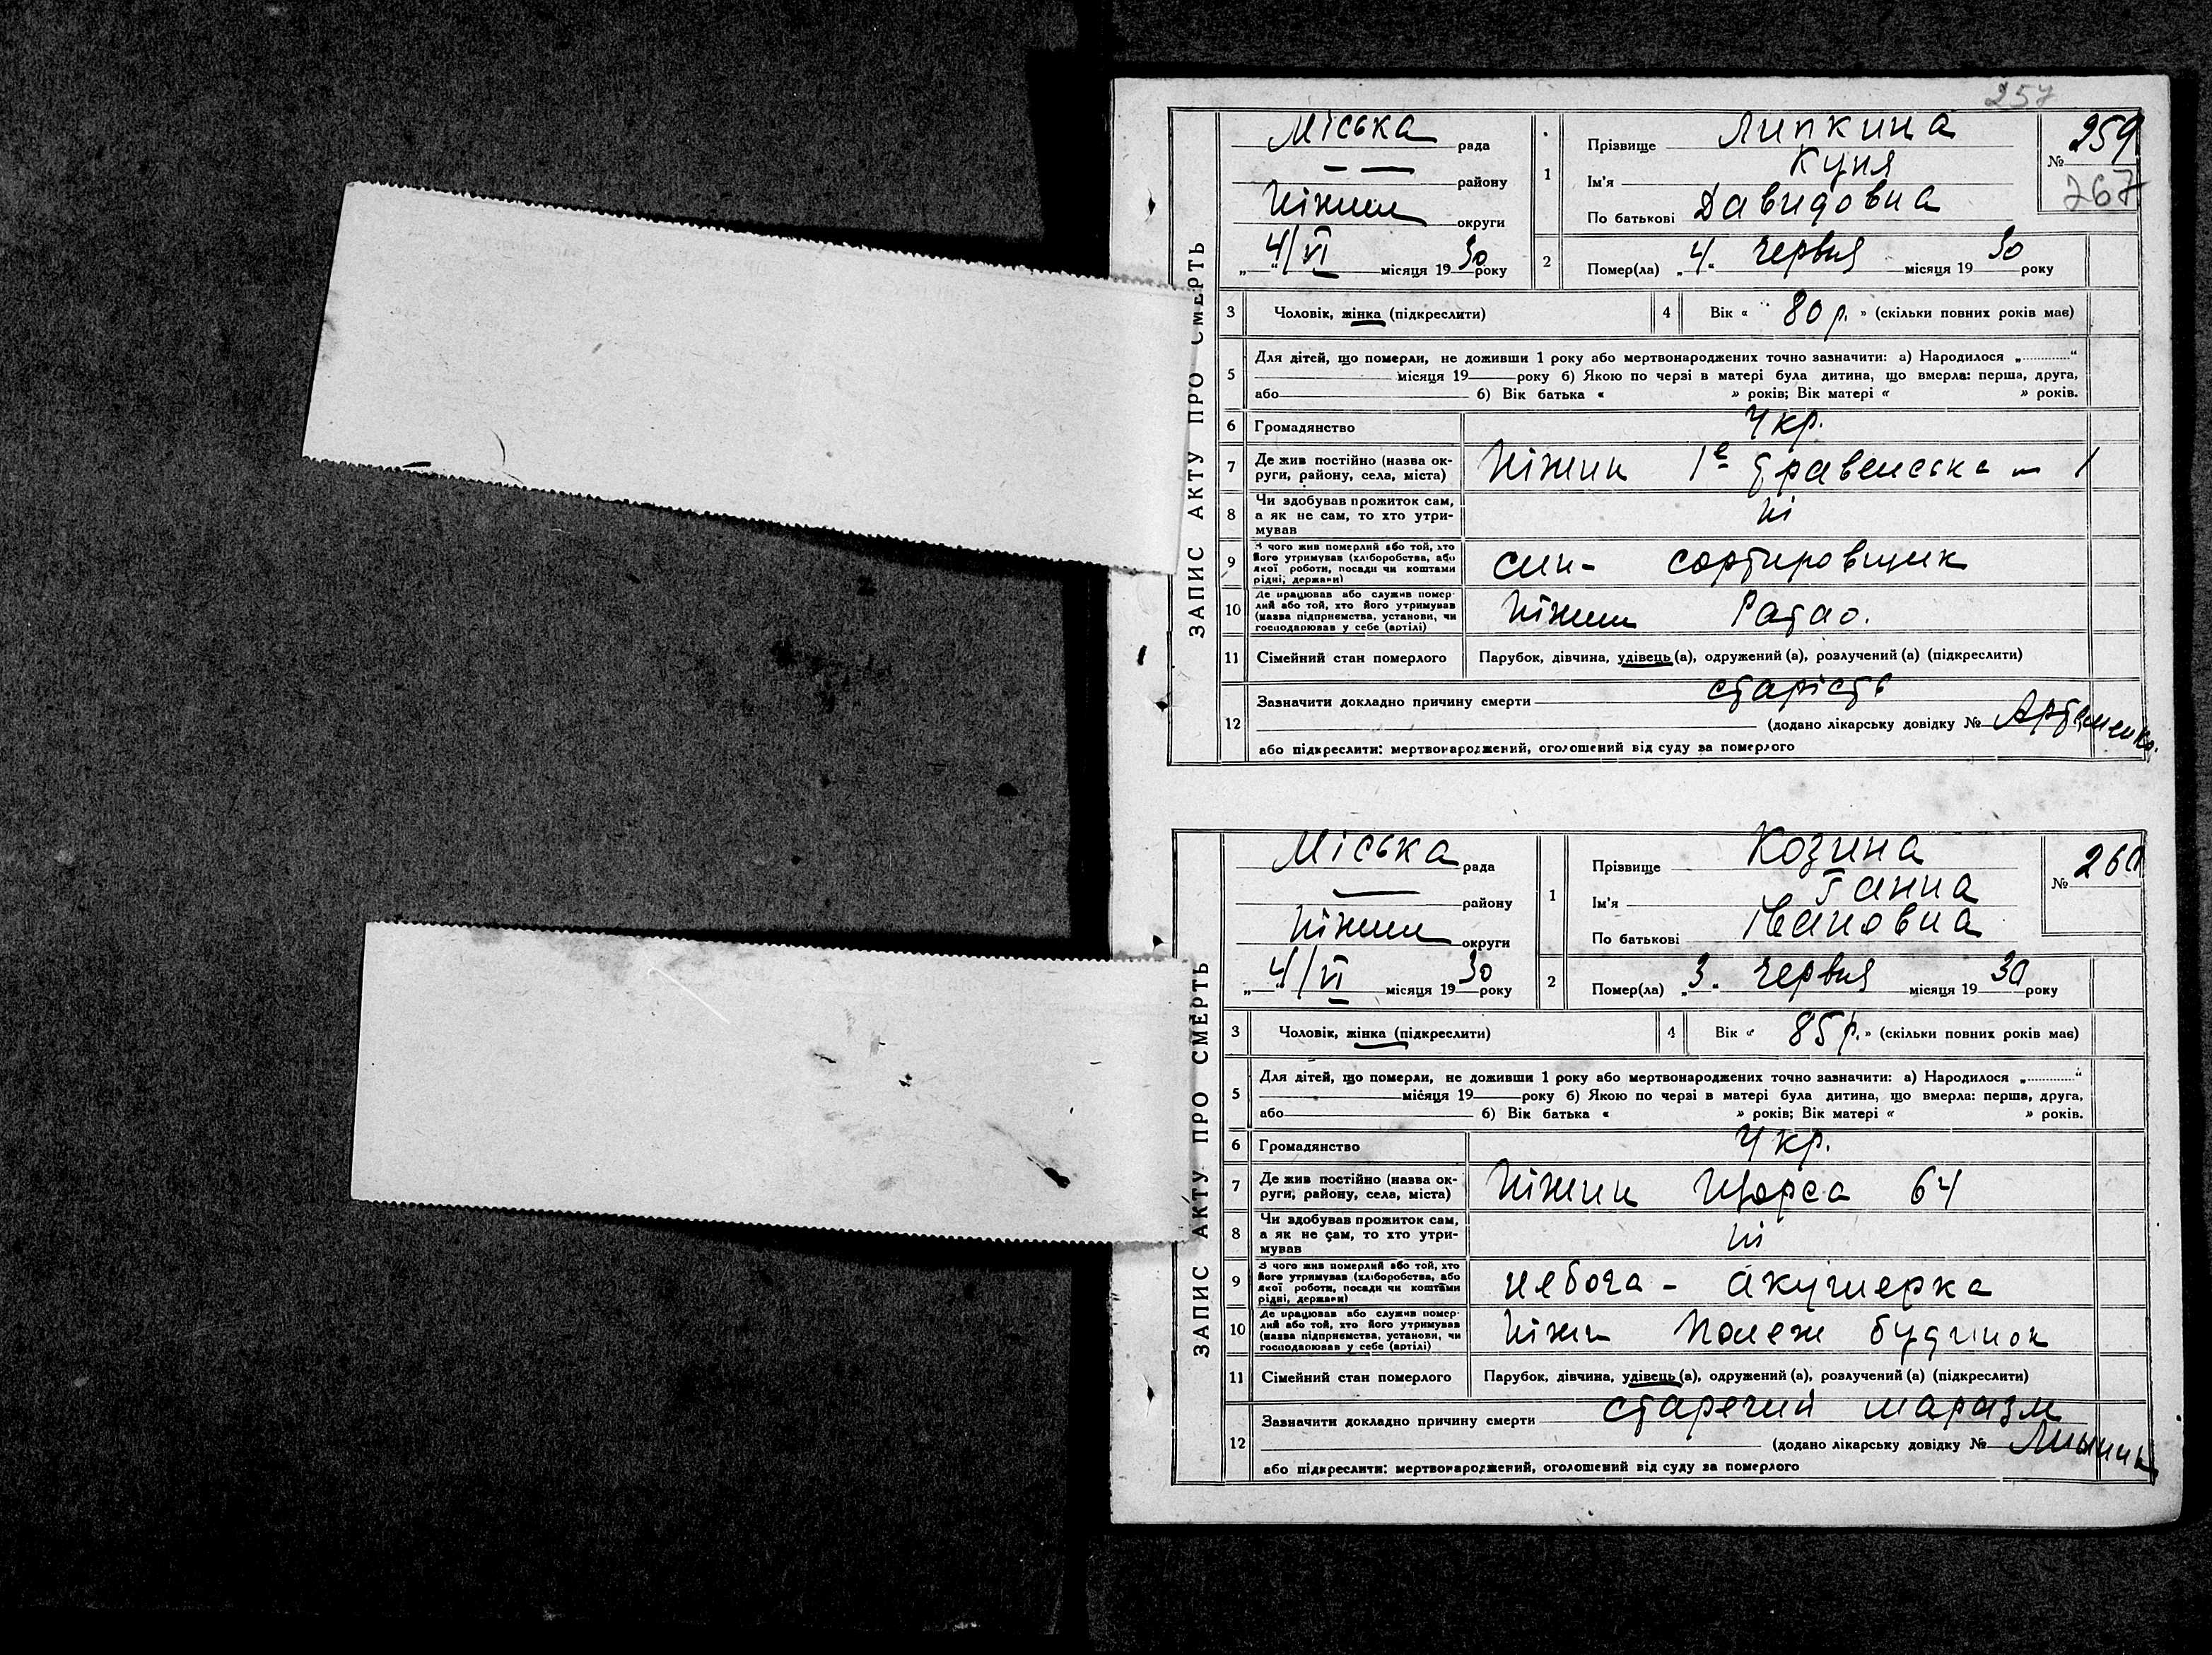 257
ЗАПИС АКТУ ПРО СМЕРТЬ
Міська рада
району
Ніжин округи
„4/VI" місяця 1930 року
1
Прізвище Липкина
Ім'я Куня
По батькові Давидовна
№ 259
267
2 Помер(ла) „4" червня місяця 1930 року
3 Чоловік, жінка (підкреслити)
4 Вік « 80 р. » (скільки повних років має)
5 Для дітей, що померли, не доживши 1 року або мертвонароджених точно зазначити: а) Народилося „ "
місяця 19 року б) Якою по черзі в матері була дитина, що вмерла: перша, друга,
або б) Вік батька « » років; Вік матері « » років.
6 Громадянство Укр.
7 Де жив постійно (назва ок-
руги, району, села, міста) Ніжин 1е 1
8 Чи здобував прожиток сам,
а як не сам, то хто утри-
мував ні
9 З чого жив померлий або той, хто
його утримував (хліборобства, або
якої роботи, посади чи коштами
рідні, держави) син - сортировщик
10 Де працював або служив помер-
лий або той, хто його утримував
(назва підприємства, установи, чи
господарював у себе (артілі) Ніжин
11 Сімейний стан померлого Парубок, дівчина, удівець (а), одружений (а), розлучений (а) (підкреслити)
12 Зазначити докладно причину смерти старість
(додано лікарську довідку № Артеменко.
або підкреслити: мертвонароджений, оголошений від суду за померлого
ЗАПИС АКТУ ПРО СМЕРТЬ
Міська рада
району
Ніжин округи
„4/VI" місяця 1930 року
1
Прізвище Козина
Ім'я Ганна
По батькові Івановна
№ 260
2 Помер(ла) „3. червня місяця 1930 року
3 Чоловік, жінка (підкреслити)
4 Вік « 85 р. » (скільки повних років має)
5 Для дітей, що померли, не доживши 1 року або мертвонароджених точно зазначити: а) Народилося „ "
місяця 19 року б) Якою по черзі в матері була дитина, що вмерла: перша, друга,
або б) Вік батька « » років; Вік матері « » років.
6 Громадянство Укр.
7 Де жив постійно (назва ок-
руги, району, села, міста) Ніжин Щорса 64
8 Чи здобував прожиток сам,
а як не сам, то хто утри-
мував ні
9 З чого жив померлий або той, хто
його утримував (хліборобства, або
якої роботи, посади чи коштами
рідні, держави) небога - акушерка
10 Де працював або служив помер-
лий або той, хто його утримував
(назва підприємства, установи, чи
господарював у себе (артілі) Ніжин будинок
11 Сімейний стан померлого Парубок, дівчина, удівець (а), одружений (а), розлучений (а) (підкреслити)
12 Зазначити докладно причину смерти старечий маразм
(додано лікарську довідку №
або підкреслити: мертвонароджений, оголошений від суду за померлого